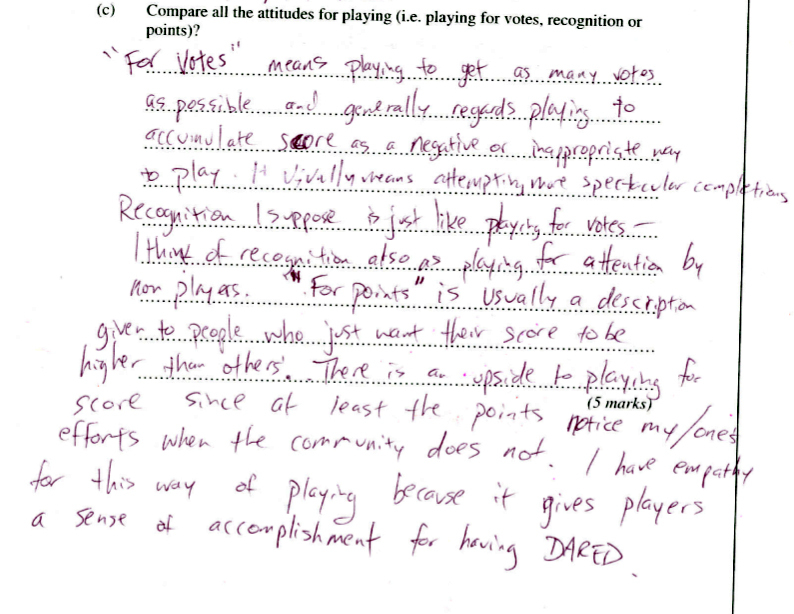 (c) Compare all the attitudes for playing (i.e. playing for votes, recognition or
points)?
"For Votes" means playing to get as many votes
as possible and generally regards playing to
accumulate score as a negative or inappropriate way
to play. It usually means attempting more spectacular completions
Recognition I suppose is just like playing for votes –
I think of recognition also as playing for attention by
non players. "For points" is usually a description
given to people who just want their score to be
higher than others'. There is an upside to playing for
(5 marks)
score since at least the points notice my/one's
efforts when the community does not. I have empathy
for this way of playing because it gives players
a sense of accomplishment for having DARED.